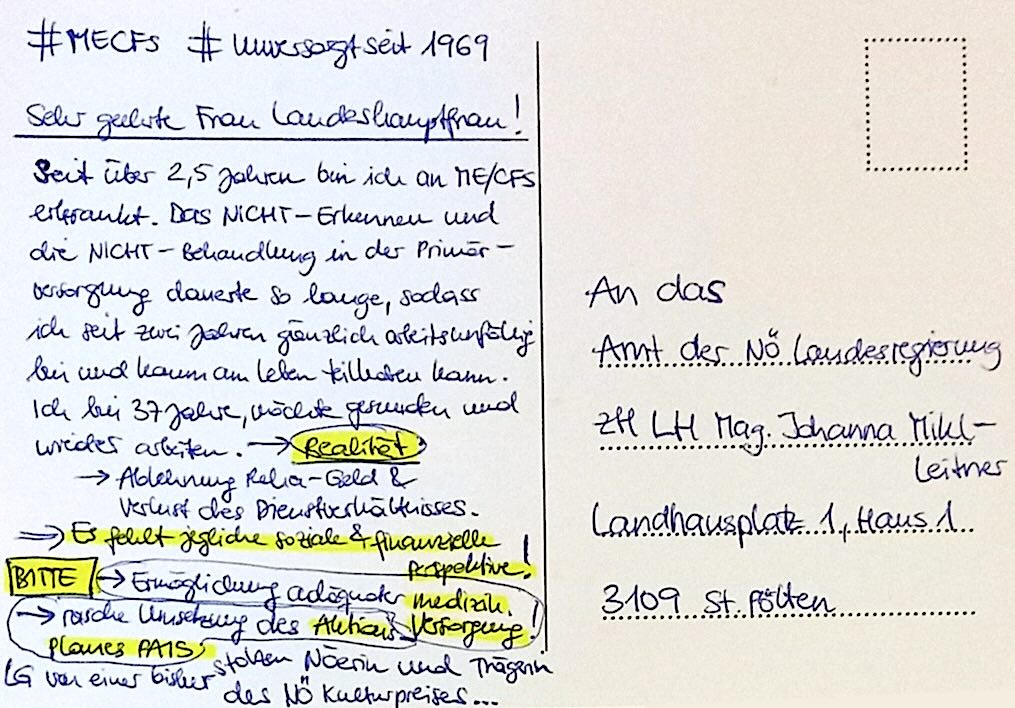 #MECFS #Unversorgt seit 1969
Sehr geehrte Frau Landeshauptfrau!
Seit über 2,5 Jahren bin ich an ME/CFS
erkrankt. Das NICHT-Erkennen und
die NICHT-Behandlung in der Primär-
versorgung dauerte so lange, sodass
ich seit zwei Jahren gänzlich arbeitsunfähig
bin und kaum am Leben teilhaben kann.
Ich bin 37 Jahre, möchte gesunden und
wieder arbeiten. → Realität
→ Ablehnung Reha-Geld &
Verlust des Dienstverhältnisses.
⇒ Es fehlt jegliche soziale & finanzielle
Perspektive!
BITTE → Ermöglichung adäquater
medizin.
Versorgung!
→ rasche Umsetzung des Aktions
planes PAIS
LG von einer bisher stolzen Nöerin und Trägerin
des NÖ Kulturpreises...
An das
Amt der NÖ Landesregierung
zH LH Mag. Johanna Mikl-
Leitner
Landhausplatz 1, Haus 1
3109 St. Pölten